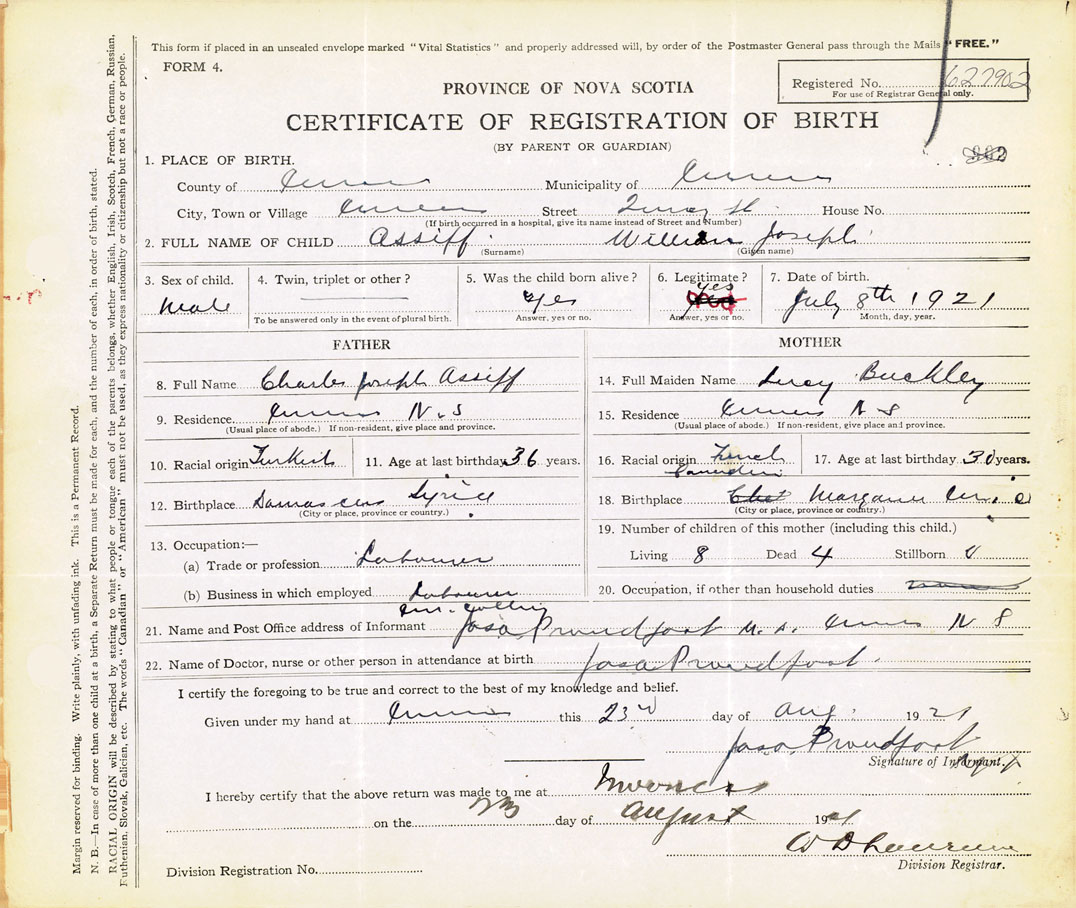 This form if placed in an unsealed envelope marked "Vital Statistics" and properly addressed will, by order of the Postmaster General pass through the Mails "FREE."
FORM 4.
Registered No. 627902
For use of Registrar General only.
PROVINCE OF NOVA SCOTIA
CERTIFICATE OF REGISTRATION OF BIRTH
(BY PARENT OR GUARDIAN)
1. PLACE OF BIRTH.
County of Municipality of
City, Town or Village Street House No.
(If birth occurred in a hospital, give its name instead of Street and Number)
2. FULL NAME OF CHILD Assiff William Joseph
(Surname) (Given name)
3. Sex of child. 4. Twin, triplet or other? 5. Was the child born alive? 6. Legitimate? 7. Date of birth.
Male Yes yes July 8th 1921
To be answered only in the event of plural birth. Answer, yes or no. Answer, yes or no. Month, day, year.
FATHER
8. Full Name Charles Joseph Assiff
9. Residence N.S
(Usual place of abode.) If non-resident, give place and province.
10. Racial origin Turkish 11. Age at last birthday 36 years.
12. Birthplace Damascus Syria
(City or place, province or country.)
13. Occupation:—
(a) Trade or profession Labourer
(b) Business in which employed Labourer
MOTHER
14. Full Maiden Name Lucy Buckley
15. Residence N S
(Usual place of abode.) If non-resident, give place and province.
16. Racial origin French Canadian 17. Age at last birthday 30 years.
18. Birthplace Margaree
(City or place, province or country.)
19. Number of children of this mother (including this child.)
Living 8 Dead 4 Stillborn
20. Occupation, if other than household duties
21. Name and Post Office address of Informant Jas a Proudfoot N S
22. Name of Doctor, nurse or other person in attendance at birth Jas a Proudfoot
I certify the foregoing to be true and correct to the best of my knowledge and belief.
Given under my hand at this 23rd day of Aug. 1921
Jas a Proudfoot
Signature of Informant.
I hereby certify that the above return was made to me at Inverness
on the day of August 1921
Division Registrar.
Division Registration No.
Margin reserved for binding. Write plainly, with unfading ink. This is a Permanent Record.
N. B.—In case of more than one child at a birth, a Separate Return must be made for each, and the number of each, in order of birth, stated.
RACIAL ORIGIN will be described by stating to what people or tongue each of the parents belongs, whether English, Irish, Scotch, French, German, Russian,
Ruthenian, Slovak, Galician, etc. The words "Canadian" or "American" must not be used, as they express nationality or citizenship but not a race or people.